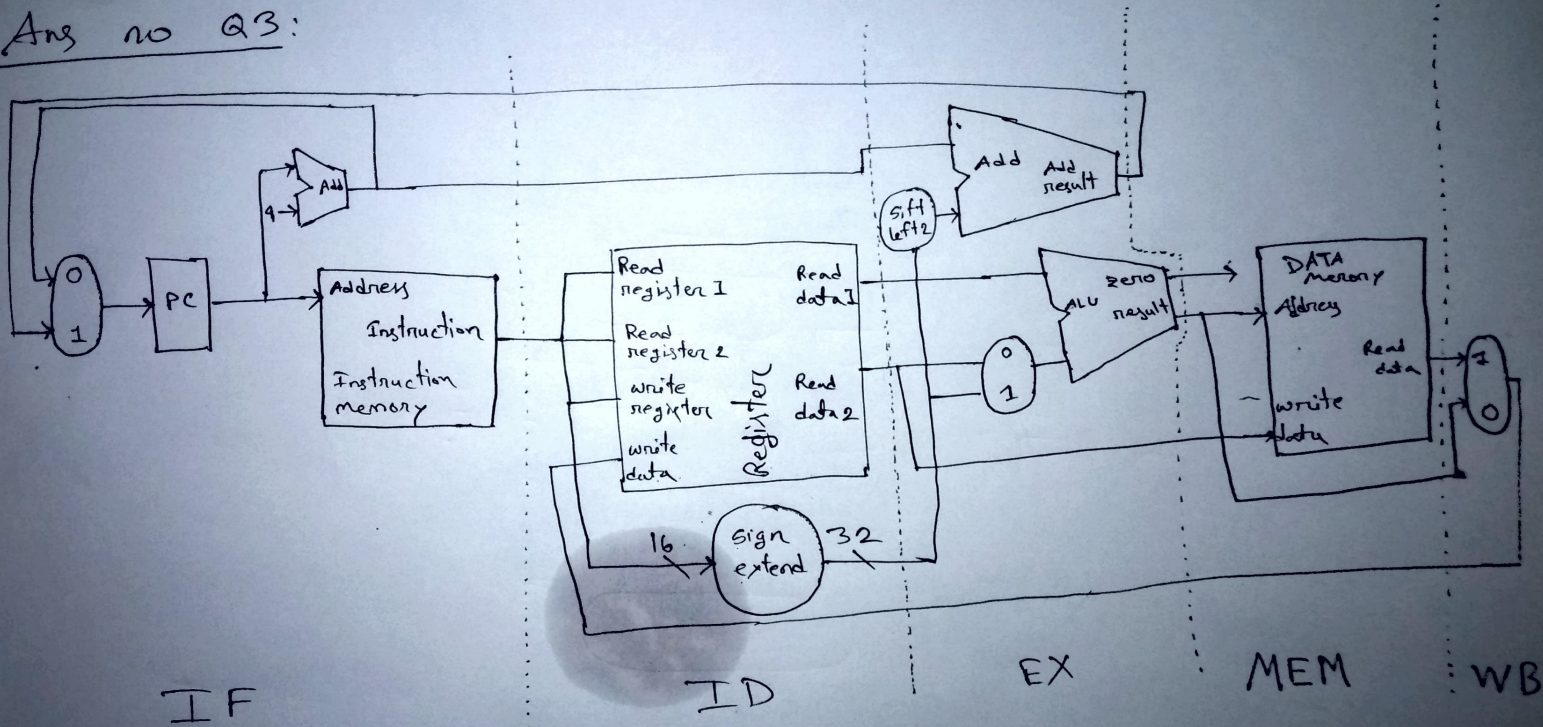 Ans no Q3:
0
1
PC
4
Add
Address
Instruction
Instruction
memory
Read
register 1
Read
register 2
write
register
write
data
Register
Read
data 1
Read
data 2
16
sign
extend
32
Sift
left 2
Add
Add
result
0
1
ALU
zero
result
DATA
memory
Address
Read
data
write
data
1
0
IF
ID
EX
MEM
WB